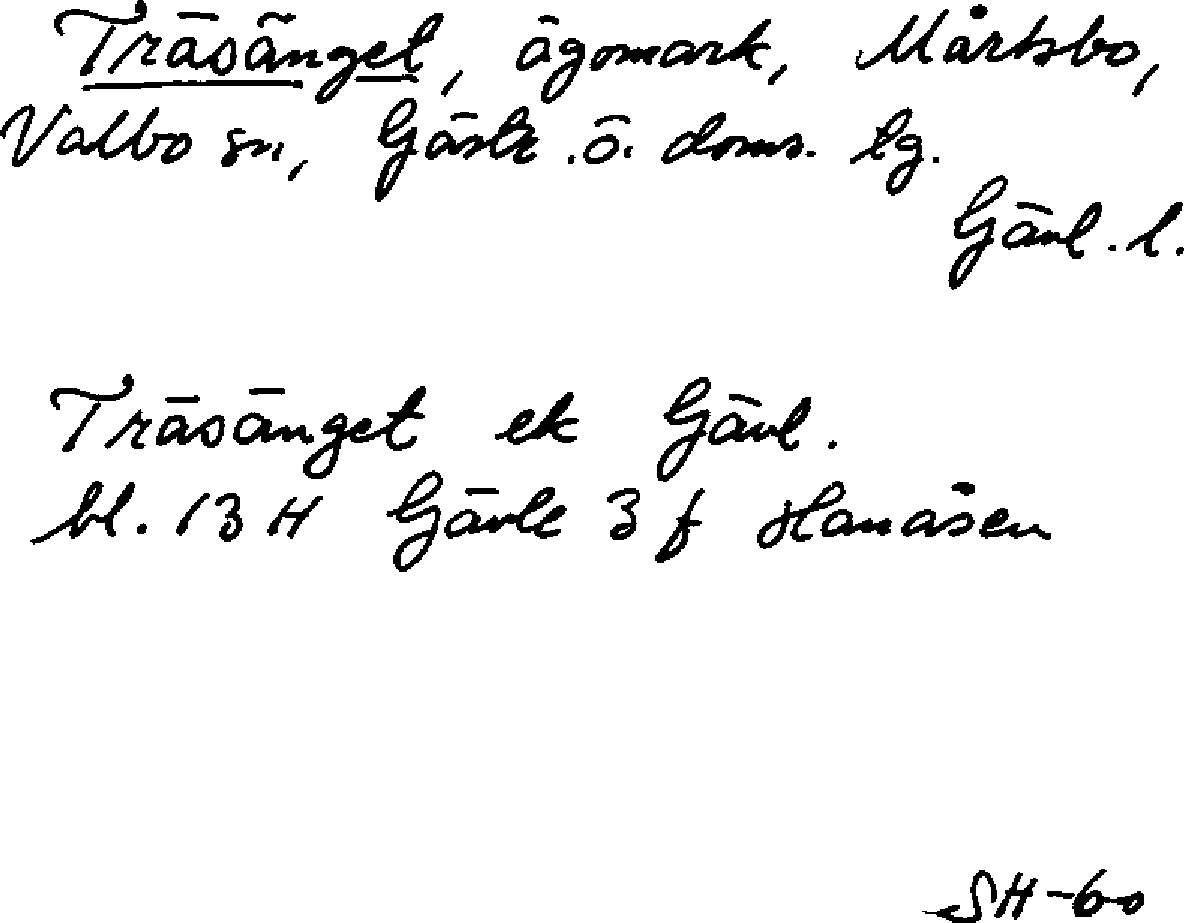 Träsänget, ägomark, Mårtsbo,
Valbo sn, Gästr. ö. doms. lg.
Gävl. l.
Träsänget ek Gävl.
bl. 13 H Gävle 3 f Hanåsen
SH-60